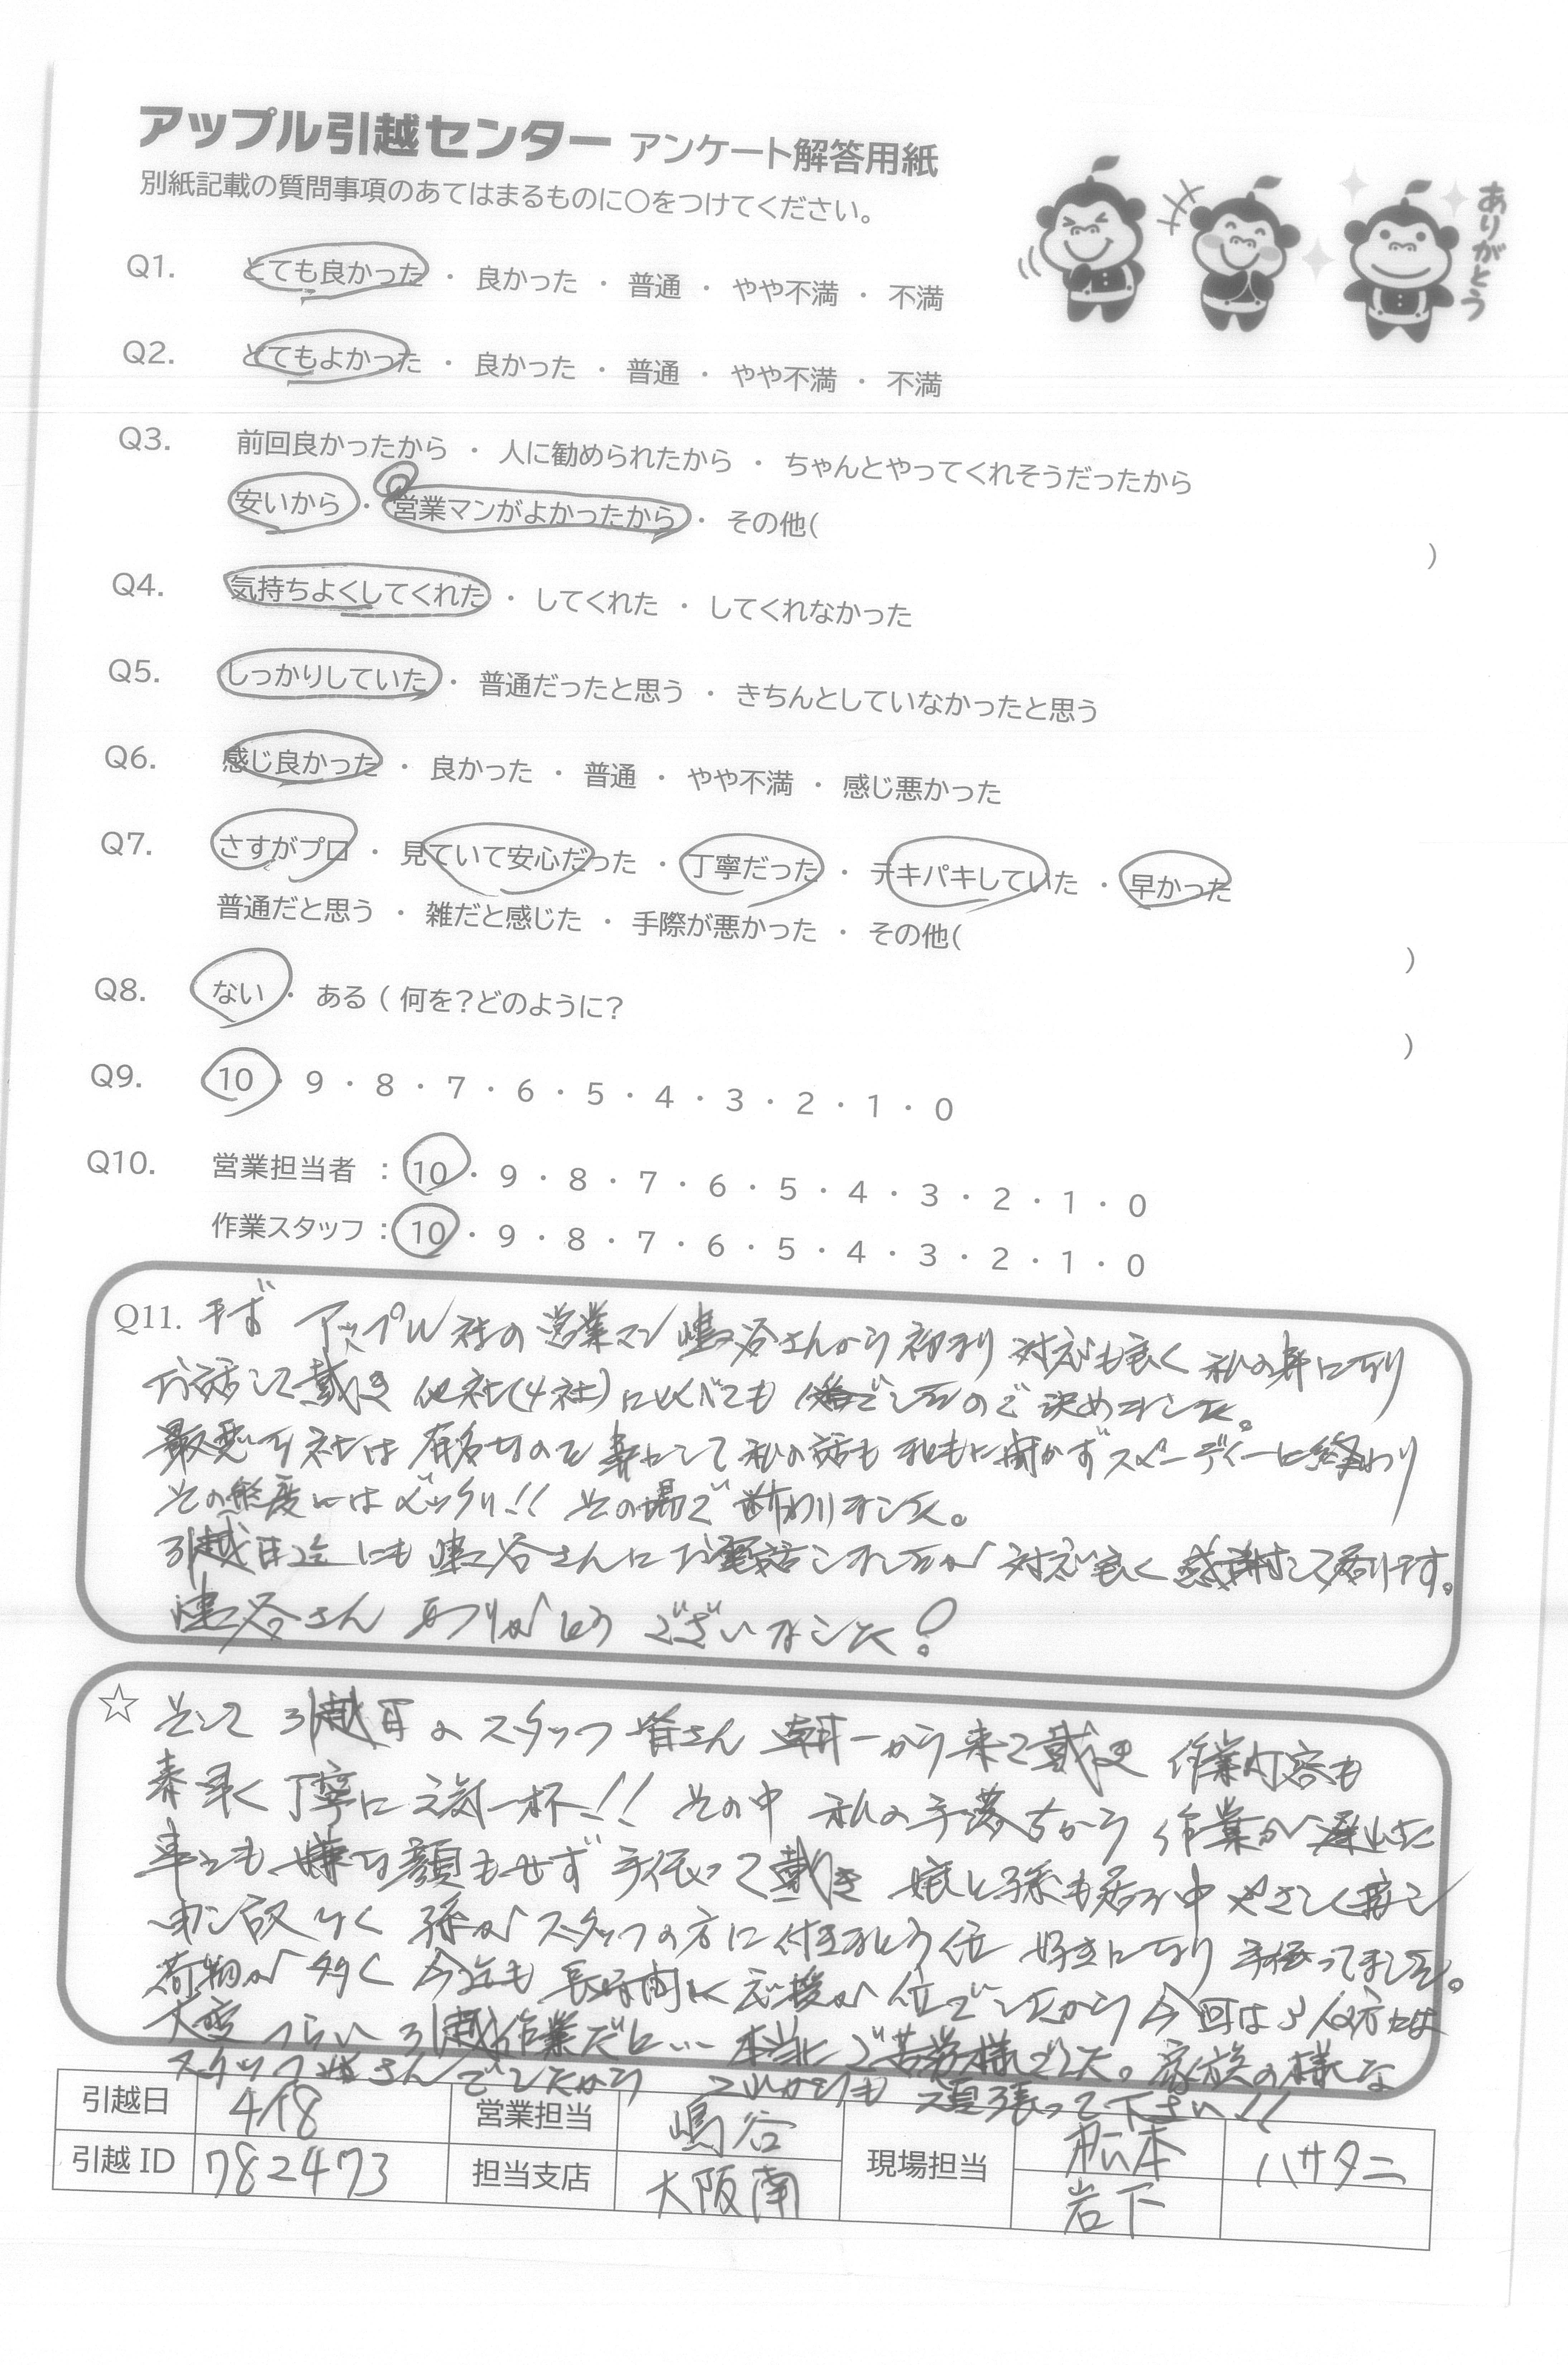 アップル引越センター アンケート解答用紙
別紙記載の質問事項のあてはまるものに〇をつけてください。
ありがとう
Q1. とても良かった ・ 良かった ・ 普通 ・ やや不満 ・ 不満
Q2. とてもよかった ・ 良かった ・ 普通 ・ やや不満 ・ 不満
Q3. 前回良かったから ・ 人に勧められたから ・ ちゃんとやってくれそうだったから
安いから ・ 営業マンがよかったから ・ その他( )
Q4. 気持ちよくしてくれた ・ してくれた ・ してくれなかった
Q5. しっかりしていた ・ 普通だったと思う ・ きちんとしていなかったと思う
Q6. 感じ良かった ・ 良かった ・ 普通 ・ やや不満 ・ 感じ悪かった
Q7. さすがプロ ・ 見ていて安心だった ・ 丁寧だった ・ テキパキしていた ・ 早かった
普通だと思う ・ 雑だと感じた ・ 手際が悪かった ・ その他( )
Q8. ない ・ ある ( 何を?どのように? )
Q9. 10 ・ 9 ・ 8 ・ 7 ・ 6 ・ 5 ・ 4 ・ 3 ・ 2 ・ 1 ・ 0
Q10. 営業担当者 : 10 ・ 9 ・ 8 ・ 7 ・ 6 ・ 5 ・ 4 ・ 3 ・ 2 ・ 1 ・ 0
作業スタッフ : 10 ・ 9 ・ 8 ・ 7 ・ 6 ・ 5 ・ 4 ・ 3 ・ 2 ・ 1 ・ 0
Q11. まず アップル社の営業マン嶋谷さんから始まり 対応も良く 私の身になり
お話して戴き 他社(4社)に比べても 1番でしたので決めました。
最悪な社は 有名なのを 私の話も まともに聞かずスピーディーに終わり
その態度にはビックリ!! その場で断わりました。
引越日迄にも 嶋谷さんにお電話しましたが 対応良く感謝して居ります。
嶋谷さん ありがとうございました!
☆ そして 引越日のスタッフ皆さん 朝一から来て戴き 作業内容も
素早く 丁寧に元気一杯!! その中 私の手落ちから 作業が遅れた
事にも 嫌な顔もせず 手伝って戴き 娘と孫も居る中 やさしく接し
孫がスタッフの方に付きまとう位 好きになり 手伝ってました。
荷物が多く 今迄も 長時間に応援が 位でしたから 今回は3人の方
大変つらい引越作業だと… 本当にご苦労様でした。家族の様な
スタッフ皆さんでしたから これからも 頑張って下さい!!
引越日 4/18 営業担当 嶋谷 現場担当 松本 ハサタニ
引越ID 782473 担当支店 大阪南 岩下